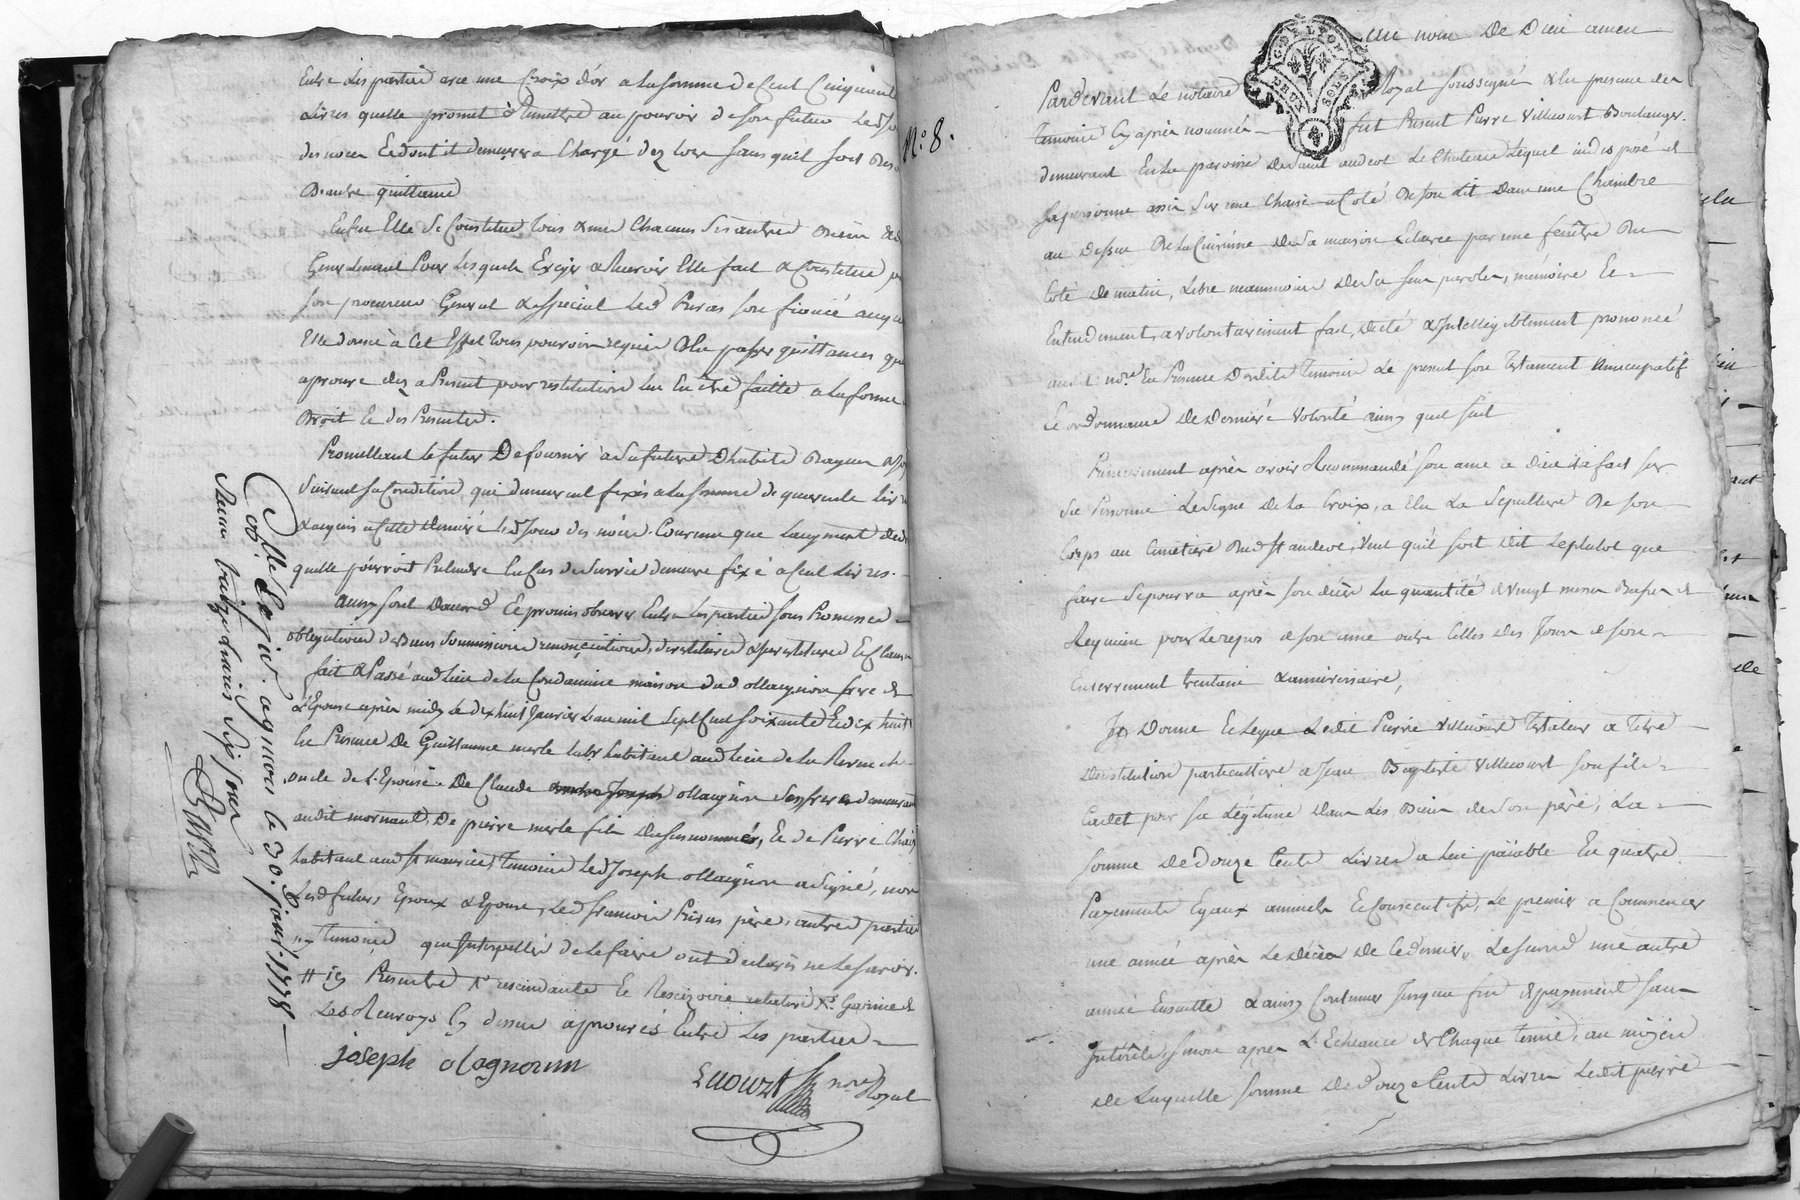 Entre les parties avec une Croix d'or a la somme de Cent Cinquante
Livres quelle promet & Remettre au pouvoir de son futur Le jo
des noces Et dont il demeurera Chargé dez lors sans quil soit bes
D'autre quittance
Enfin Elle Se Constitue tous & uns Chacuns Ses autres biens
Generalement Pour Lesquels Exiger & Recevoir Elle fait & Constitue
son procureur General & Special Led Pieras son fiancé auquel
Elle donne à Cet Effet tous pouvoirs requis & de passer quittances que
aprouve dez a Present pour restitution lui En être faitte a la forme
Droit Et des Presentes.
Promettant le futur De fournir à Sa future D'habits Bagues
Suivant sa Condition, qui demeurent fixés a la somme de quarante Livres
& acquis a Cette Derniere Led Jour des noces. Comme que Laugment
quelle pourroit Pretendre En Cas de Survie demeure fixé a Cent Livres.
Ainsy sont D'accord Et promis observer Entre Les parties sous Promesses
obligations de Biens Soumissions renonciations, Et Clauses
fait & Passé aud Lieu de la Condamine maison dud Magnon frere de
L'Epouse après midy Le dix huit Janvier L'an mil Sept Cent soixante Et dix huit
En Presence De Guillaume merle habitant aud Lieu de la
oncle de L'Epouse. De Claude Magnon Son frere demeurant
audit mornant, De pierre merle fils Dusus nommés, Et de Pierre
habitant aud St maurice, temoins Led Joseph Magnon a Signé, non
Lesd futurs Epoux & Epouse, Led francois Pieras père, autres parties
ny Temoins que Interpellés de Le faire ont declarés ne Le Savoir.
Les Renvoys Cy dessus aprouvés Entre Les parties
joseph Magnonin
nore Royal
Collé Cosin. a gnon le 30. janv. 1778
Recu treize francs Six sous
N.° 8.
DE LYON
DEUX SOLS
au nom De Dieu amen
Pardevant Le notaire Royal soussigné & En presence des
temoins Cy après nommés fut Present Pierre Villecourt Boulanger
demeurant En La paroisse De Saint andeol Le Chateau Lequel indisposé de
sa personne assis Sur une Chaise a Coté De son Lit Dans une Chambre
au Dessus De La Cuisinne de Sa maison Eclairée par une fenêtre Du
Coté De matin, Libre neanmoins de Ses sens parole, mémoire Et
Entendement, a volontairement fait, dicté & Intelligiblement prononcé
audit nore En Presence Desdits Temoins Le present son testament Nuncupatif
Et ordonnance De Derniere Volonté ainsy quil suit
Premierement après avoir Recommandé son ame a dieu & fait sur
Sa Personne Le Signe De La Croix, a Elu La Sepulture De son
Corps au Cimetiere Dud St andeol, Veut quil soit Dit Leplutot que
faire Se pourra après son décès La quantité de Vingt messes Basses de
Requiem pour Le repos de son ame outre Celles des Jours de son
Enterrement trentaine & anniversaire,
Donne Et Legue Ledit Pierre Villecourt Testateur a Titre
D'institution particulliere a Jean Baptiste Villecourt Son fils
Cadet pour sa Légitime Dans Les Biens de Son père, La
Somme De Douze Cents Livres a Lui païable En quatre
Payements Egaux annuels Et Consecutifs, Le premier a Commencer
une année après Le décès De Ce dernier, Le Second une autre
année Ensuitte & ainsy Continuer Jusqua fin de payement sans
Intérêts, sinon après L'Echeance de Chaque terme, au moyen
De Laquelle somme De Douze Cents Livres Ledit pierre